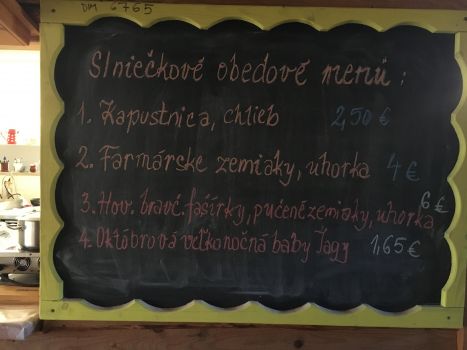 DM 6765
Slniečkové obedové menú :
1. Kapustnica, chlieb 2,50 €
2. Farmárske zemiaky, uhorka 4 €
3. Hov. bravč. fašírky, pučené zemiaky, uhorka 6 €
4. Októbrová veľkonočná baby Jagy 1,65 €